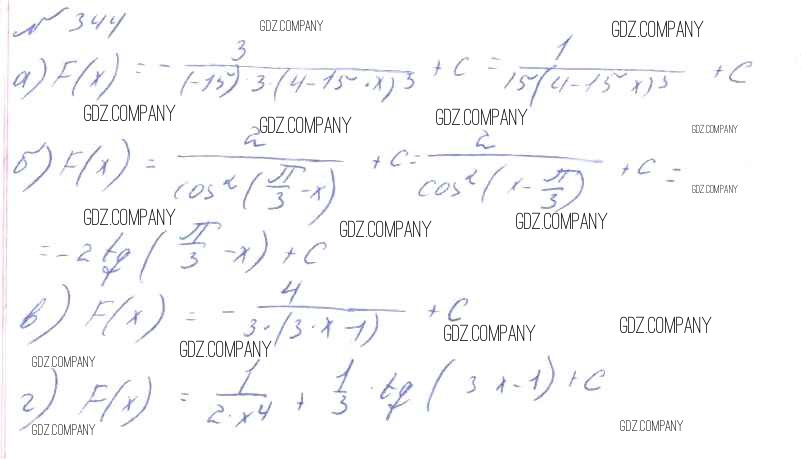 № 344
GDZ.COMPANY GDZ.COMPANY
а) F(x) = - 3/((-15)·3·(4-15·x)³) + C = 1/(15(4-15x)³) + C
GDZ.COMPANY GDZ.COMPANY GDZ.COMPANY GDZ.COMPANY
б) F(x) = 2/(cos²(π/3-x)) + C = 2/(cos²(x-π/3)) + C =
GDZ.COMPANY
GDZ.COMPANY GDZ.COMPANY GDZ.COMPANY
= -2 tg(π/3-x) + C
в) F(x) = - 4/(3·(3·x-1)) + C
GDZ.COMPANY GDZ.COMPANY GDZ.COMPANY GDZ.COMPANY
г) F(x) = 1/(2·x⁴) + 1/3·tg(3x-1) + C
GDZ.COMPANY GDZ.COMPANY